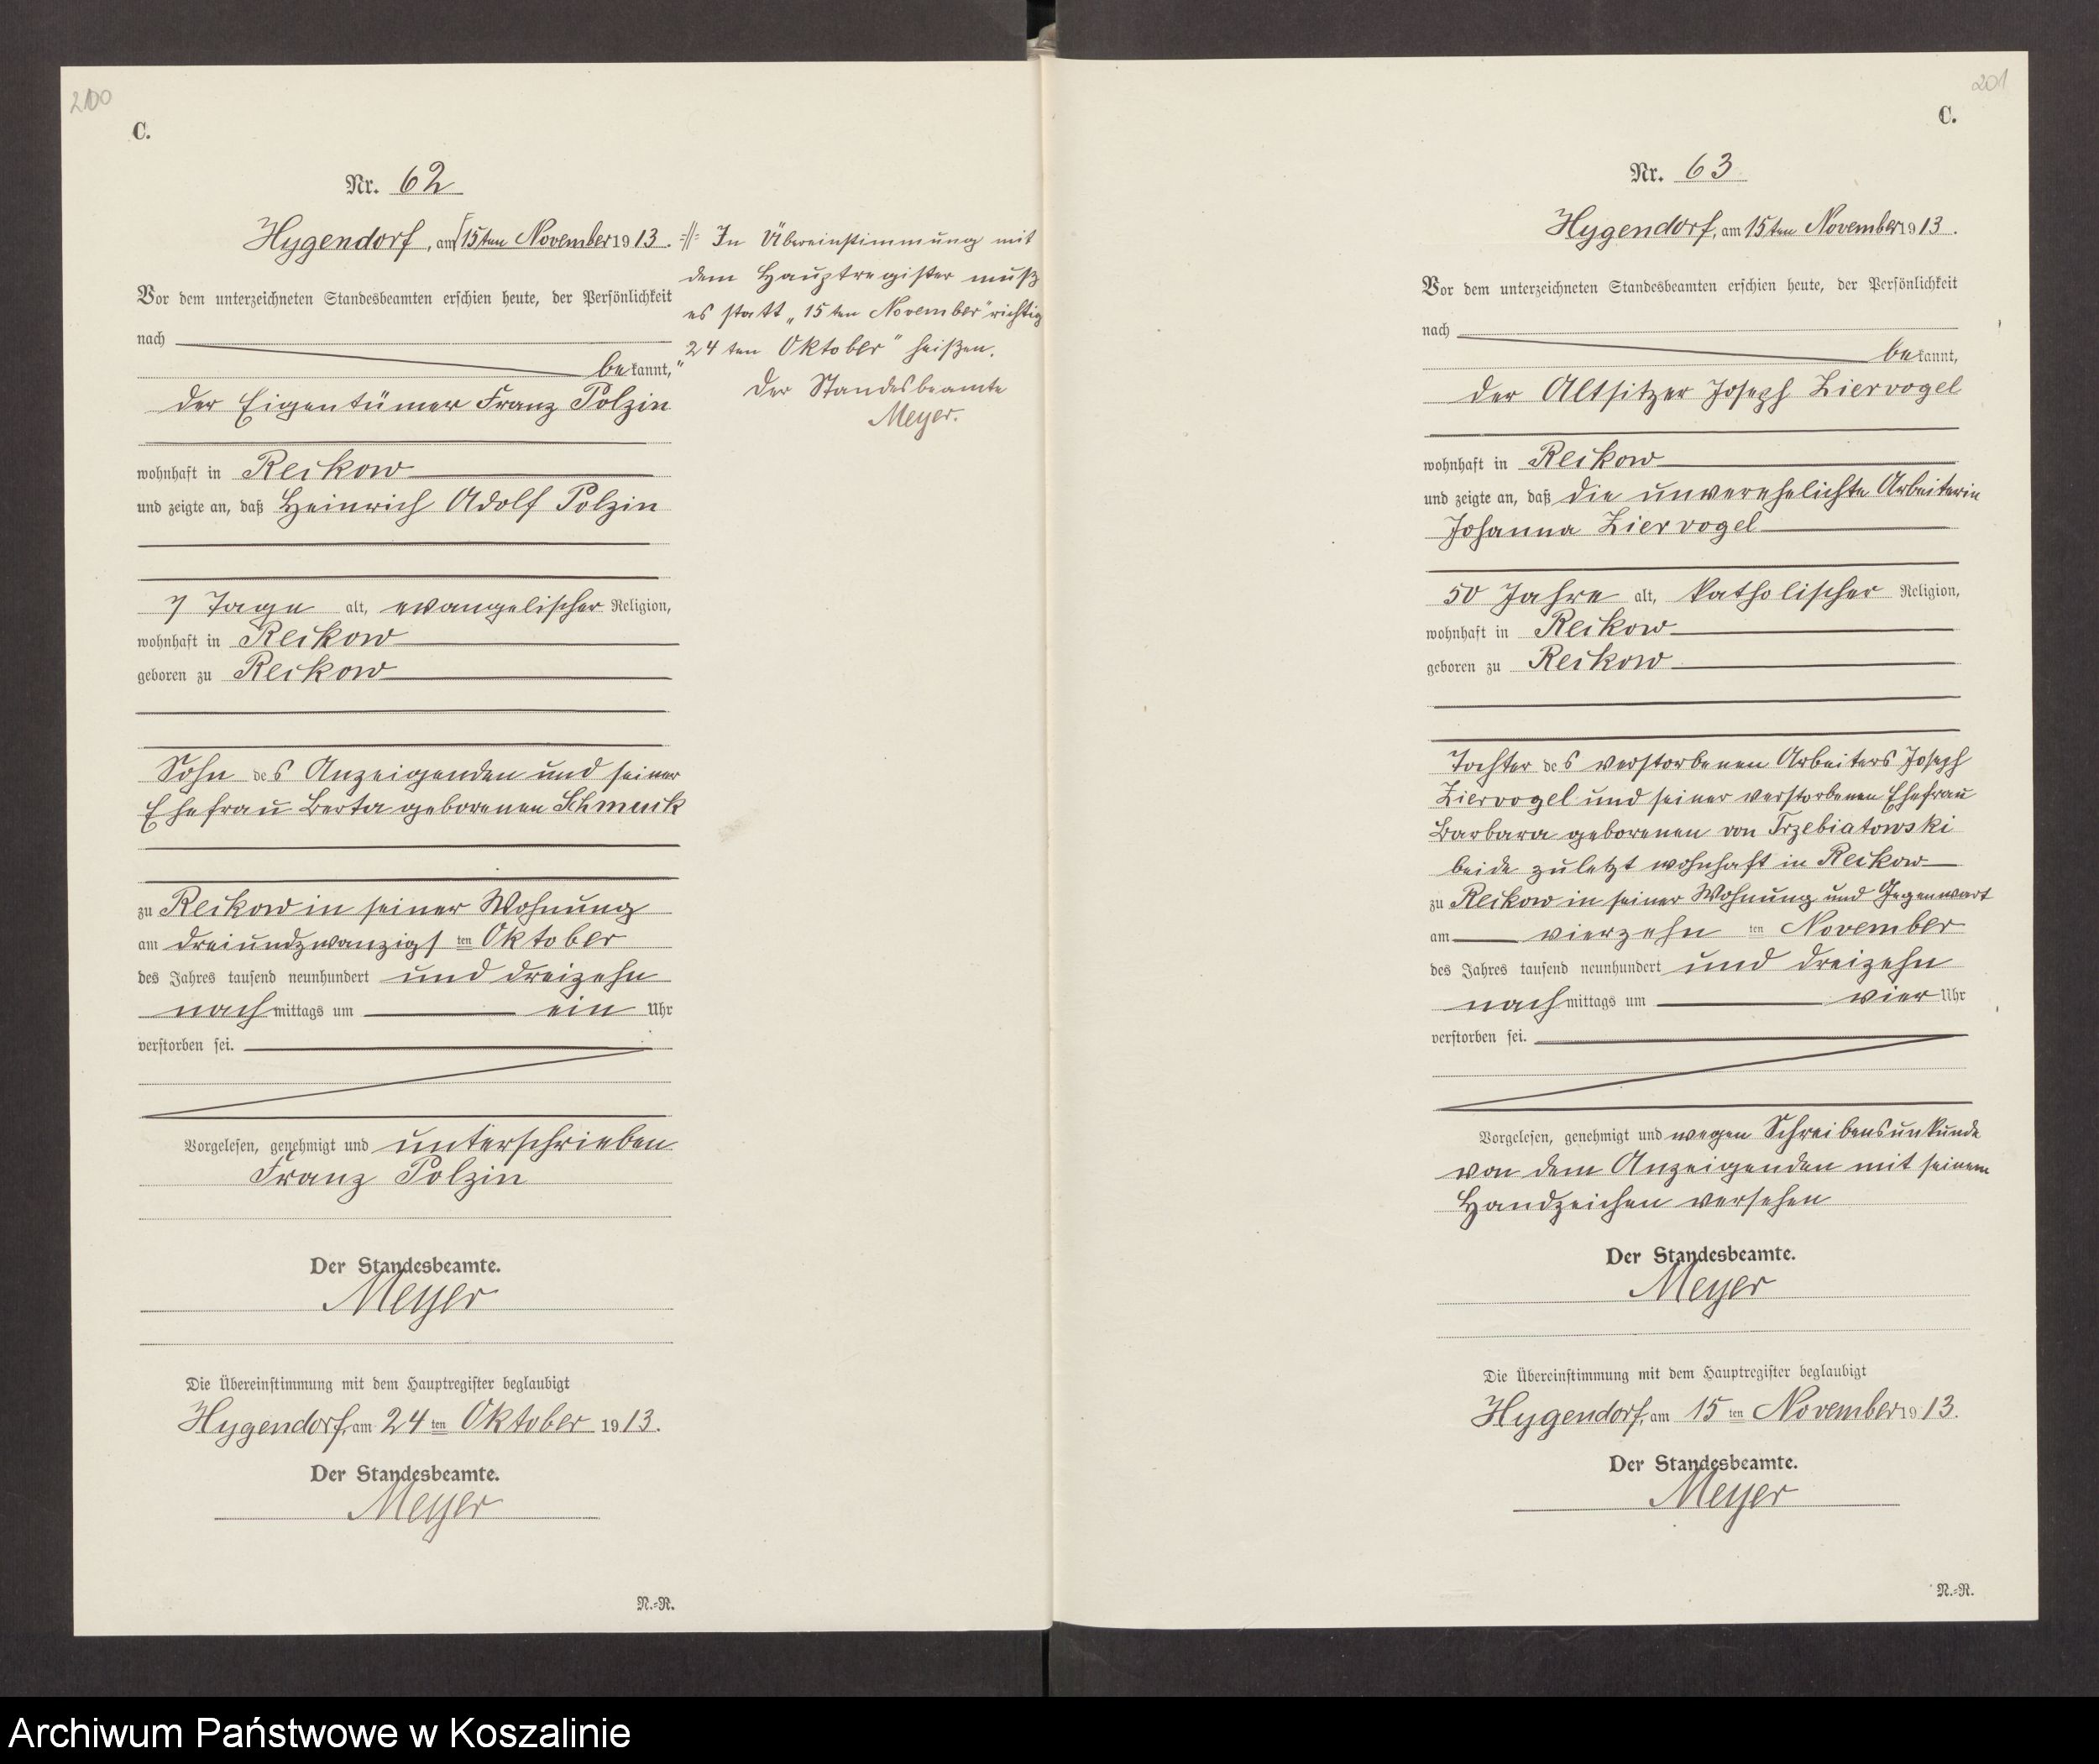 200
C.
Nr. 62
Hygendorf, am 15ten November 1913.
Vor dem unterzeichneten Standesbeamten erschien heute, der Persönlichkeit
nach
bekannt,
der Eigentümer Franz Polzin
wohnhaft in Reikow
und zeigte an, daß Heinrich Adolf Polzin
7 Tage alt, evangelischer Religion,
wohnhaft in Reikow
geboren zu Reikow
Sohn des Anzeigenden und seiner
Ehefrau Berta geborenen Schmuck
zu Reikow in seiner Wohnung
am dreiundzwanzigsten Oktober
des Jahres tausend neunhundert und dreizehn
nachmittags um ein Uhr
verstorben sei.
Vorgelesen, genehmigt und unterschrieben
Franz Polzin
Der Standesbeamte.
Meyer
Die Übereinstimmung mit dem Hauptregister beglaubigt
Hygendorf, am 24ten Oktober 1913.
Der Standesbeamte.
Meyer
N.-R.
In Übereinstimmung mit
dem Hauptregister muß
es statt „15ten November" richtig
„24ten Oktober" heißen.
Der Standesbeamte
Meyer.
201
C.
Nr. 63
Hygendorf, am 15ten November 1913.
Vor dem unterzeichneten Standesbeamten erschien heute, der Persönlichkeit
nach
bekannt,
der Altsitzer Joseph Ziervogel
wohnhaft in Reikow
und zeigte an, daß die unverehelichte Arbeiterin
Johanna Ziervogel
50 Jahre alt, katholischer Religion,
wohnhaft in Reikow
geboren zu Reikow
Tochter des verstorbenen Arbeiters Joseph
Ziervogel und seiner verstorbenen Ehefrau
Barbara geborenen von Trzebiatowski
beide zuletzt wohnhaft in Reikow
zu Reikow in seiner Wohnung und Gegenwart
am vierzehnten November
des Jahres tausend neunhundert und dreizehn
nachmittags um vier Uhr
verstorben sei.
Vorgelesen, genehmigt und wegen Schreibensunkunde
von dem Anzeigenden mit seinem
Handzeichen versehen
Der Standesbeamte.
Meyer
Die Übereinstimmung mit dem Hauptregister beglaubigt
Hygendorf, am 15ten November 1913.
Der Standesbeamte.
Meyer
N.-R.
Archiwum Państwowe w Koszalinie